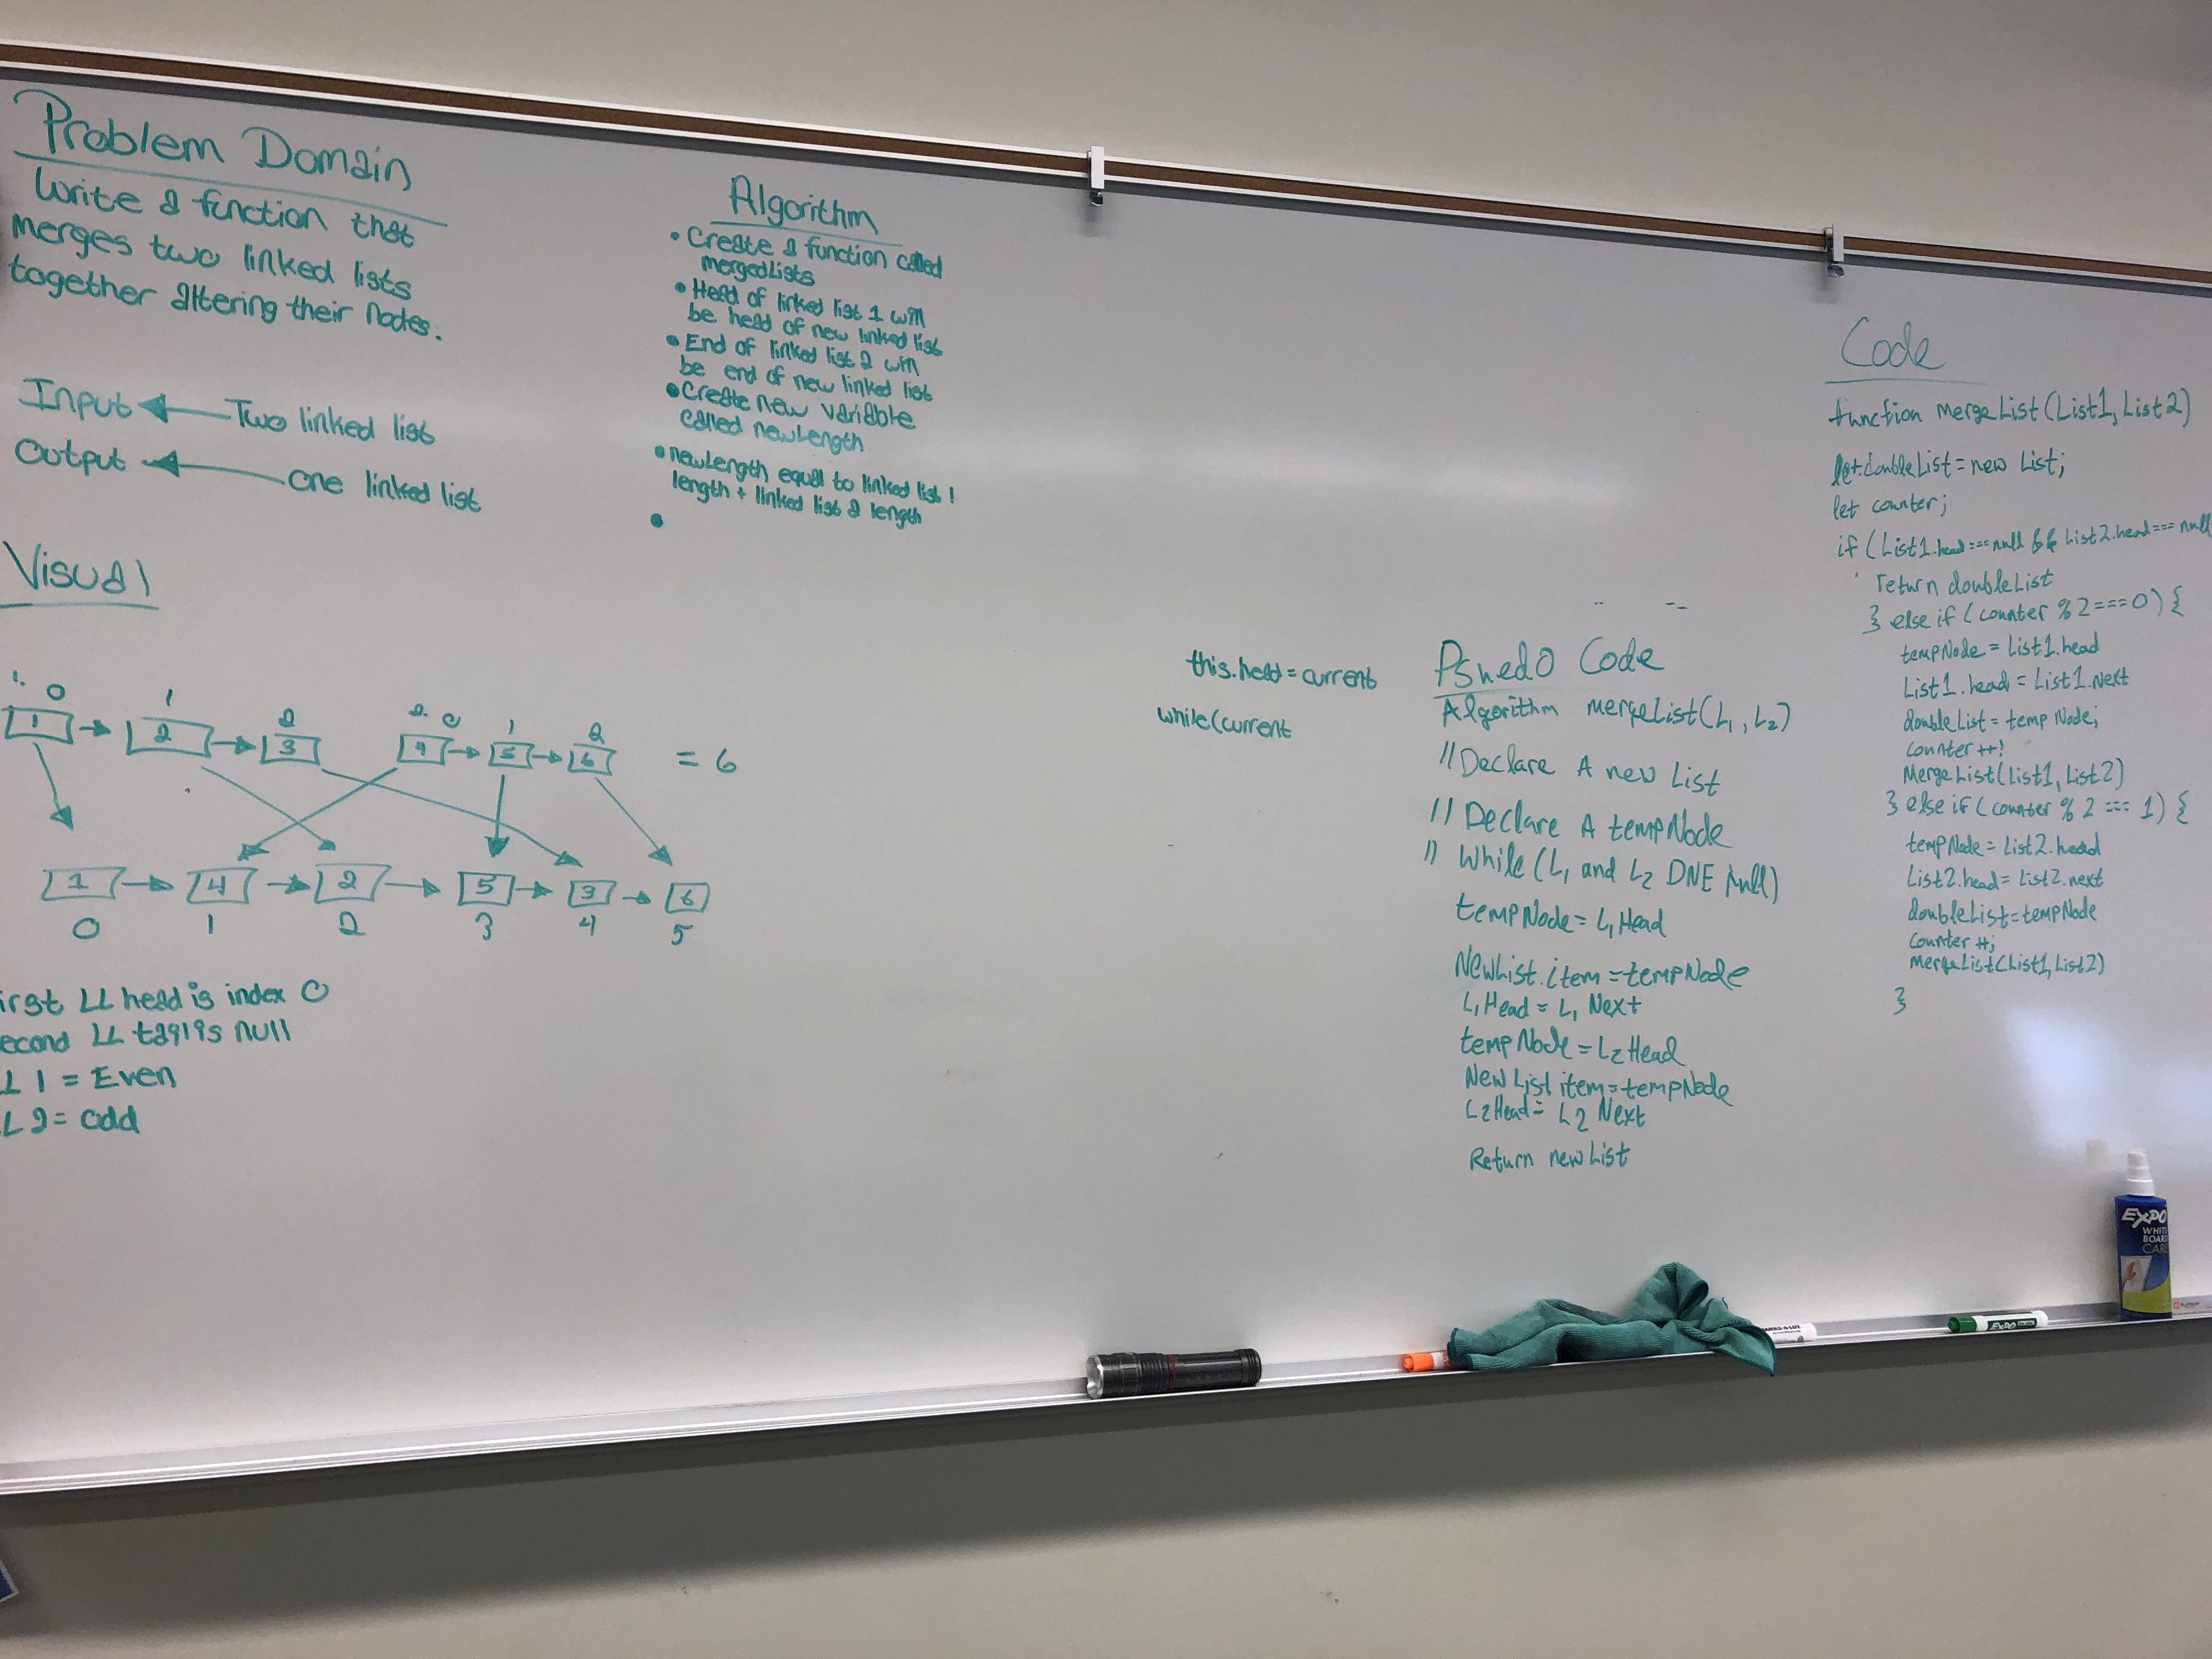 Problem Domain
Write a function that
merges two linked lists
together altering their nodes.
Input ← Two linked list
Output ← one linked list
Visual
1. 0 1 2 2. 0 1 2
1 → 2 → 3 4 → 5 → 6 = 6
1 → 4 → 2 → 5 → 3 → 6
0 1 2 3 4 5
irst LL head is index 0
econd LL tail is null
L 1 = Even
L 2 = odd
Algorithm
• Create a function called
mergedLists
• Head of linked list 1 will
be head of new linked list
• End of linked list 2 will
be end of new linked list
• Create new variable
called newLength
• newLength equal to linked list 1
length + linked list 2 length
•
this.head = current
while(current
Psuedo Code
Algorithm mergeList(L1, L2)
// Declare A new List
// Declare A tempNode
// While (L1 and L2 DNE Null)
tempNode = L1 Head
NewList.item = tempNode
L1 Head = L1 Next
temp Node = L2 Head
New List item = tempNode
L2 Head = L2 Next
Return new List
Code
function mergeList(List1, List2)
let doubleList = new List;
let counter;
if (List1.head === null && List2.head === null
return doubleList
} else if (counter % 2 === 0) {
tempNode = List1.head
List1.head = List1.next
doubleList = temp Node;
counter ++;
MergeList(List1, List2)
} else if (counter % 2 === 1) {
tempNode = List2.head
List2.head = List2.next
doubleList = tempNode
counter ++;
mergeList(List1, List2)
}
EXPO
WHITE
BOARD
CARE
EXPO